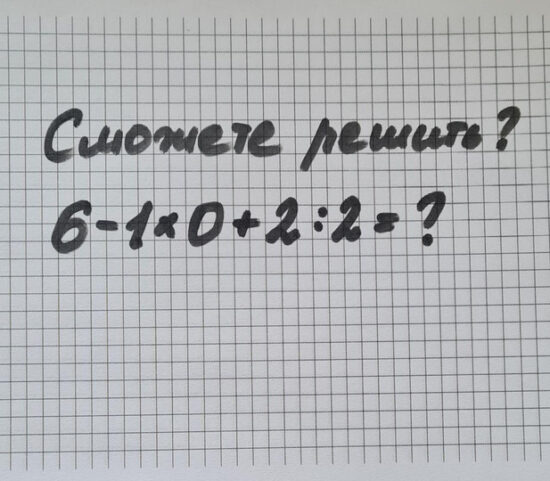 Сможете решить?
6-1×0+2:2=?